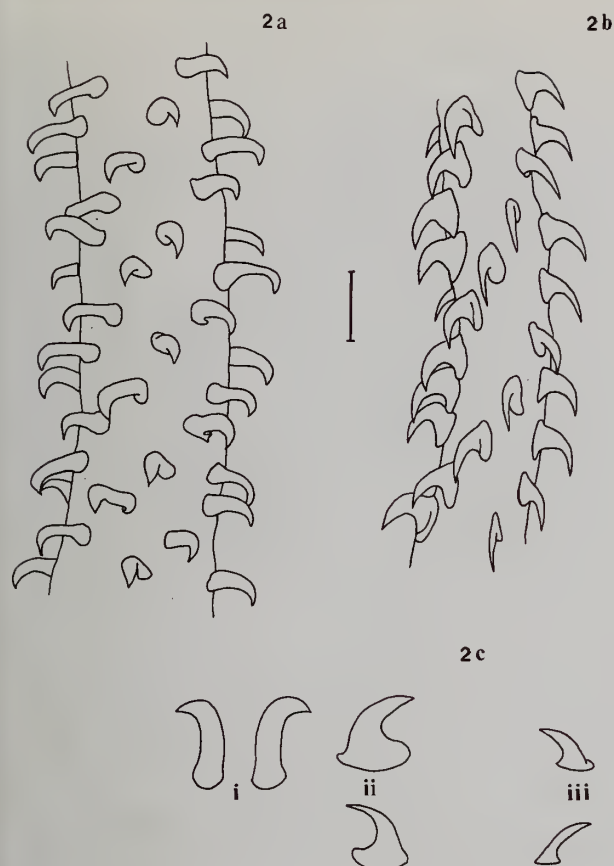 2a
2b
2c
i
ii
iii